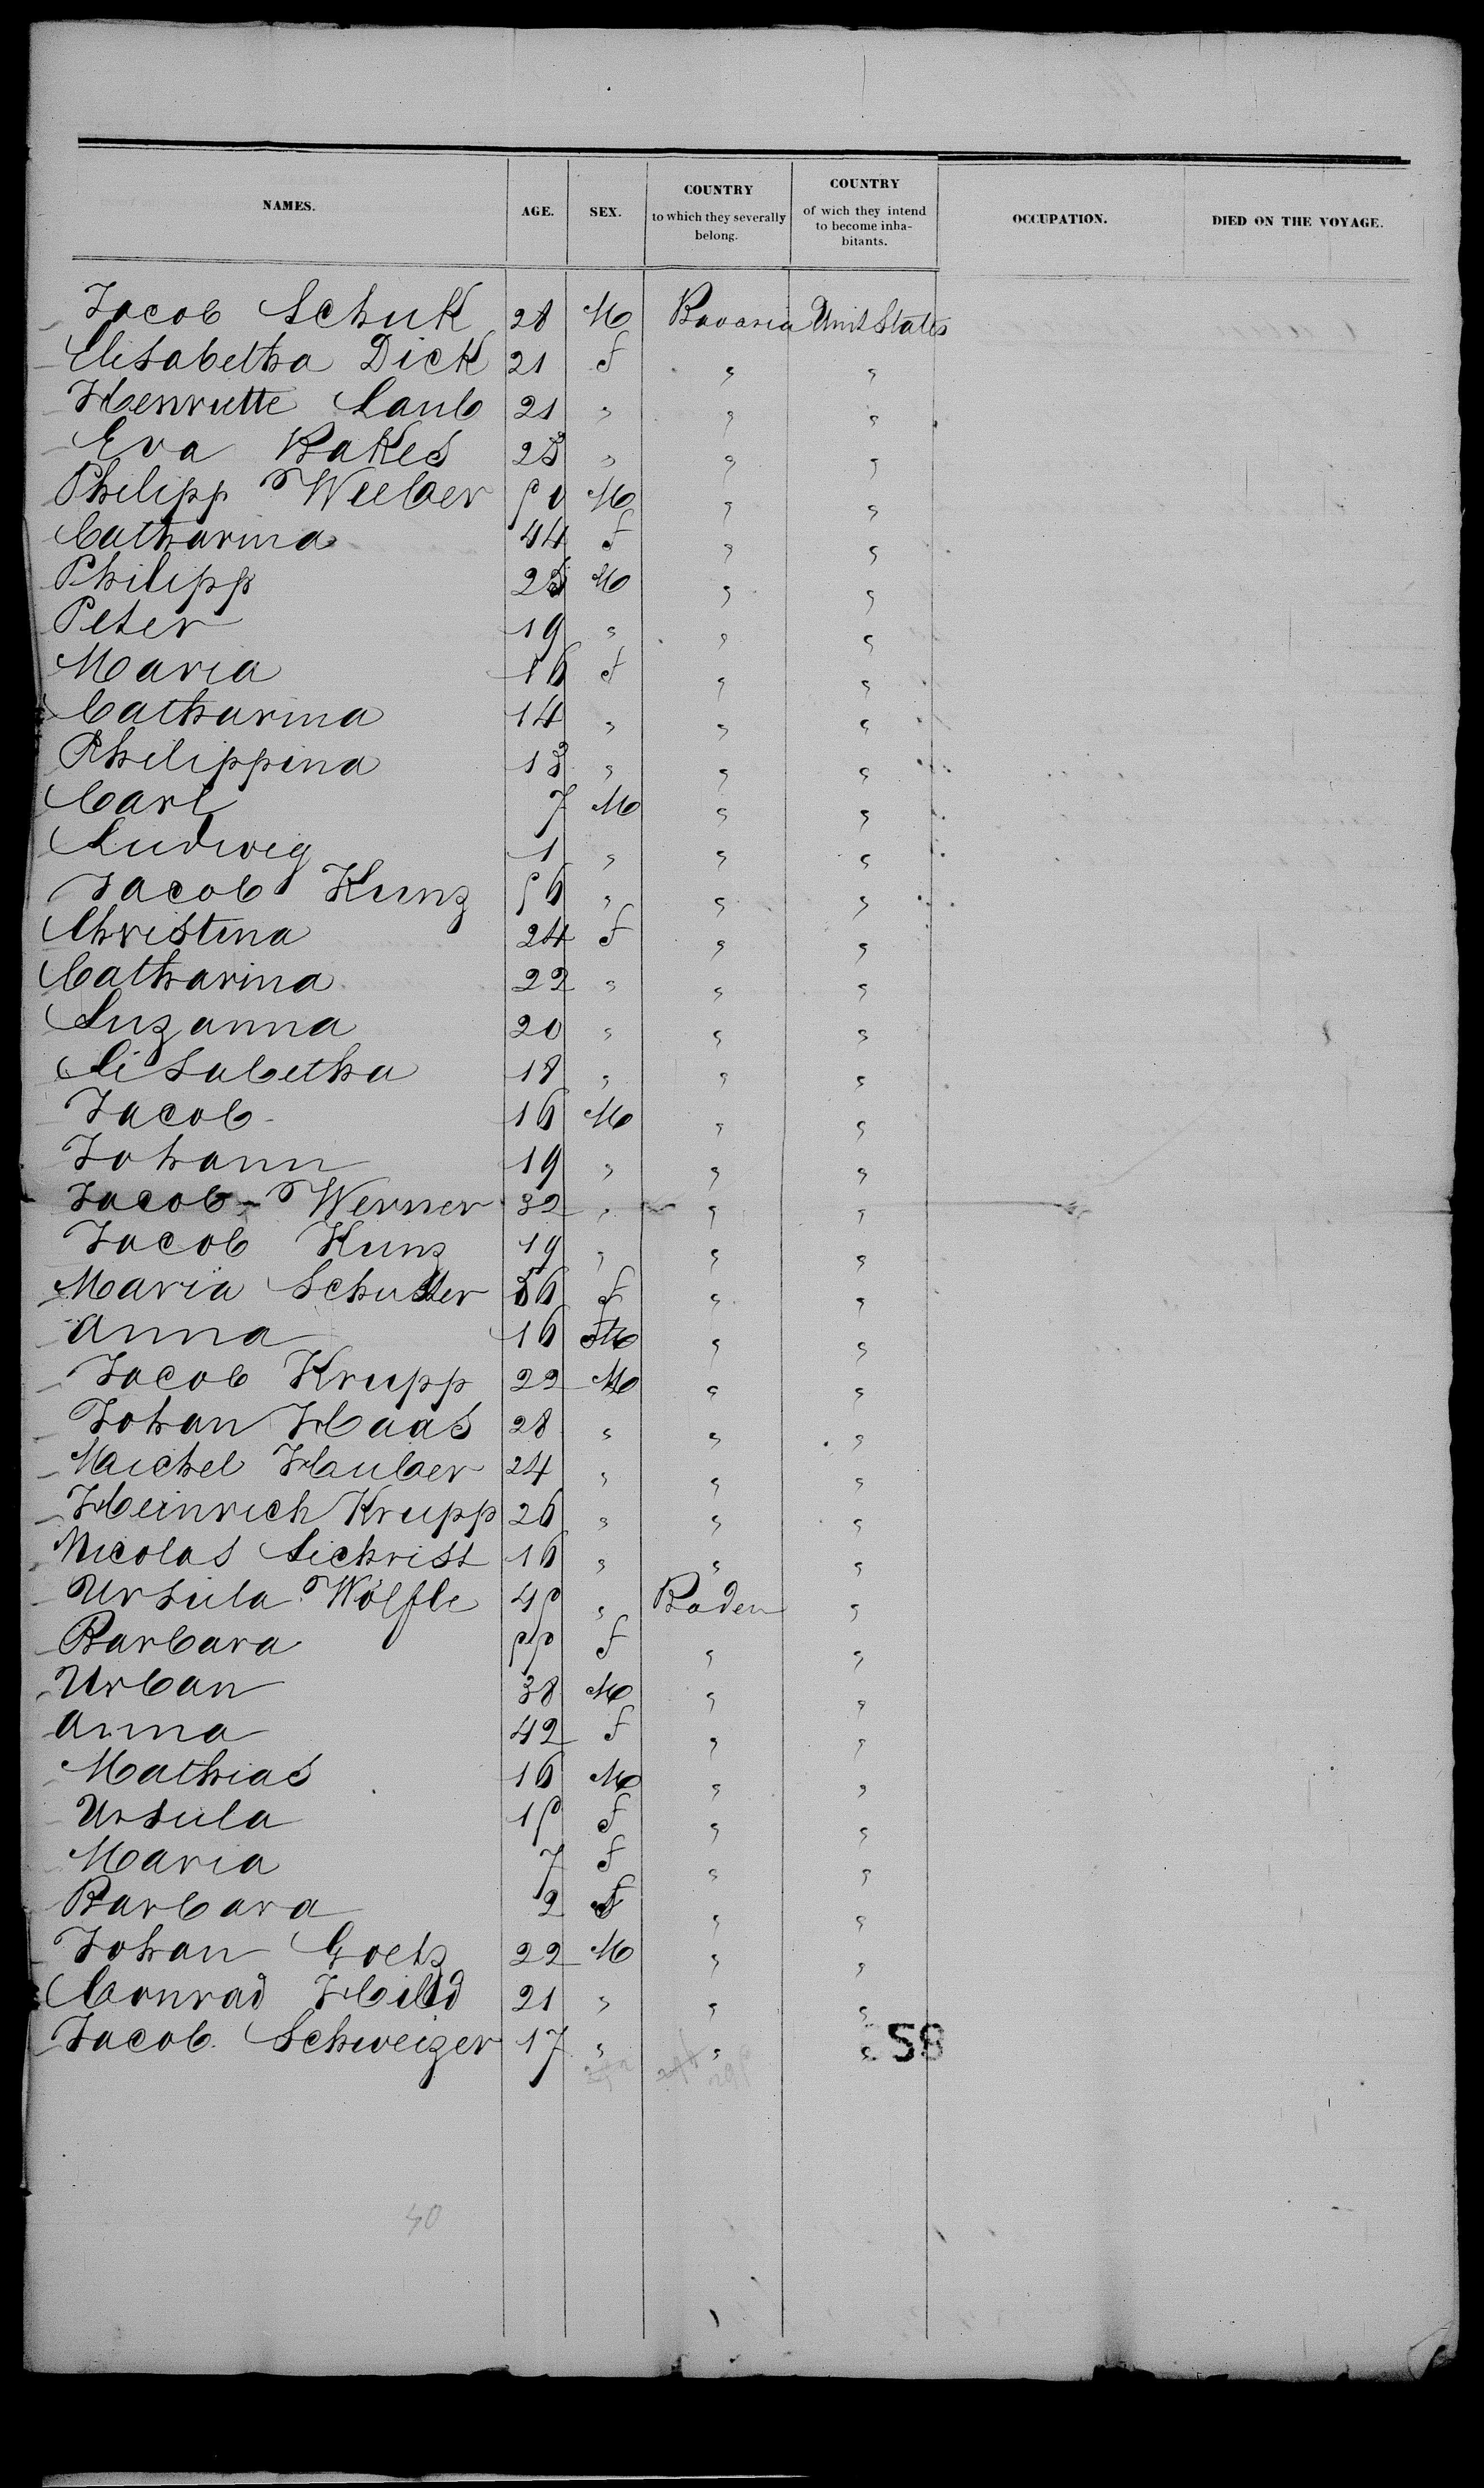 NAMES. AGE. SEX. COUNTRY to which they severally belong. COUNTRY of wich they intend to become inha- bitants. OCCUPATION. DIED ON THE VOYAGE.
Jacob Schuk 28 M Bavaria Unit States
Elisabetha Dick 21 f " "
Henriette Laub 21 " " "
Eva Bakes 23 " " "
Philipp Weeber 50 M " "
Catharina 44 f " "
Philipp 25 M " "
Peter 19 " " "
Maria 16 f " "
Catharina 14 " " "
Philippina 13 " " "
Carl 7 M " "
Ludwig 1 " " "
Jacob Kunz 56 " " "
Christina 24 f " "
Catharina 22 " " "
Suzanna 20 " " "
Elisabetha 18 " " "
Jacob 16 M " "
Johann 19 " " "
Jacob Werner 32 " " "
Jacob Kunz 19 " " "
Maria Schuster 36 f " "
Anna 16 f " "
Jacob Krupp 22 M " "
Johan Haas 28 " " "
Michel Hauber 24 " " "
Heinrich Krupp 26 " " "
Nicolas Sichrist 16 " " "
Ursula Wölfle 45 " Baden "
Barbara 55 f " "
Urban 38 M " "
Anna 42 f " "
Mathias 16 M " "
Ursula 15 f " "
Maria 7 f " "
Barbara 2 f " "
Johan Goetz 22 M " "
Conrad Hild 21 " " "
Jacob Schweizer 17 " " "
58
40